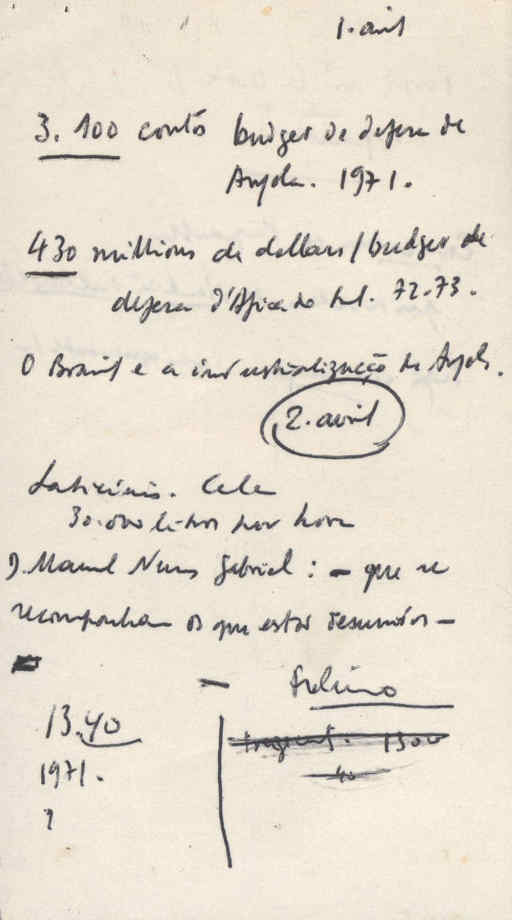 1. avril
3.100 contos budget de defesa de
Angola. 1971.
430 millions de dollars / budget de
defesa d'Africa do Sul. 72-73.
O Brasil e a industrialização de Angola.
2. avril
Laticinios. Cela
30.000 litros por hora
D. Manuel Nunes Gabriel: – que se
recomponham os que estão desunidos –
13.40
1971.
?
1300
40